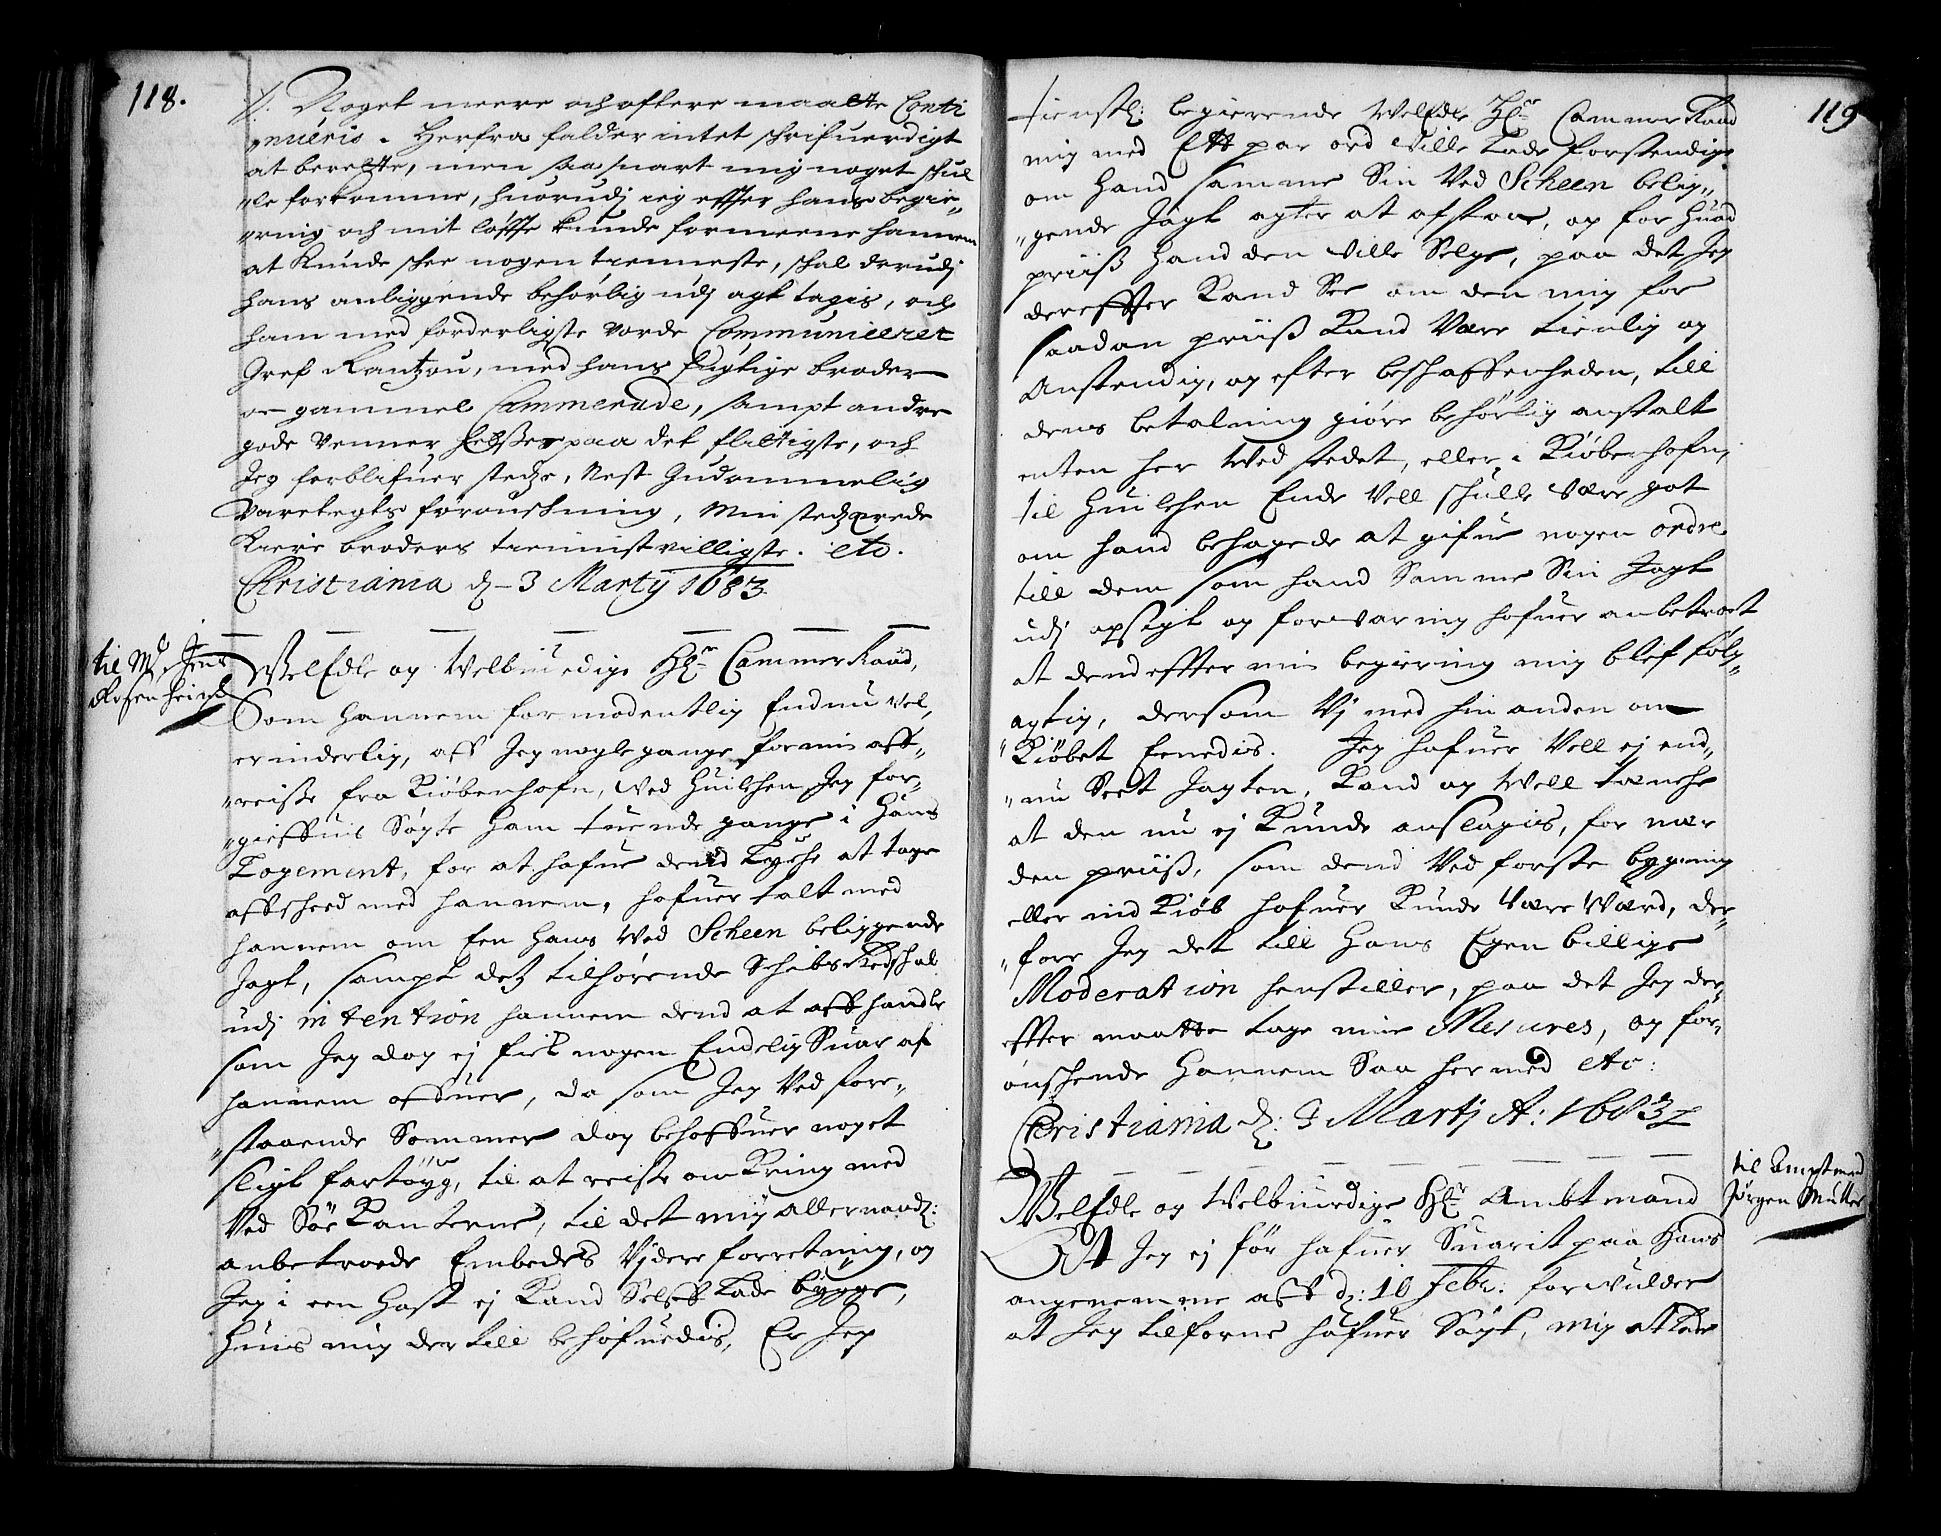 118.
/. Noget meere och oftere maatte Conti
"nueris. Herfra falder intet schrifuerdigt
at berette, men saa snart mig noget schul
"le forkomme, huorudj ieg effter hans begie"
"ring och mit löffte kunde formeene hannem
at kunde schee nogen tienneste, schal derudj
hans anliggende behörlig udj agt tagis, och
ham med forderligste vorde Communiceret
Gref Rantzou, med hans
gammel Cammerade, sampt andre
gode Venner helsser paa det flittigste, och
Jeg forblifuer stedze, Nest Gudommelig
Varetegts förönschning, Min stedzærede
Kiere broders tienistvilligste. etc.
Christiania d. 3 Martij 1683.
til Mr Jens
Rosenheim
WelEdle og Welbiurdige Hr. CammerRaad,
Som hannem formodentlig Endnu vel,
erinderlig, att Jeg nogle gange for min aff"
"reisse fra Kiöbenhafn, Ved Huilchen Jeg for"
"gieffuis Sögte ham tuende gange i Hans
Logement, for at hafue dend Lyche at tage
affscheed med hannem, hafuer talt med
hannem om Een Hans Ved Scheen beliggende
Jagt, sampt detz tilhörende Schibs Redschab
udj intention hannem dend at affhandle
som Jeg dog ej fick nogen Endelig Suar af
hannem offuer, da som Jeg Ved fore"
"staaende Sommer dog behoffuer noget
sligt fartöyg, til at reise omkring med
Ved Söe Kanterne, til det mig allernaad:
anbetroede Embedes Vjdere forretning, og
Jeg i een Hast ej Kand Selff lade bygge,
Huis mig der till behöfuedis, Er Jeg
119
tienstl: begierende Welædle Hr. CammerRaad
mig med Ett par ord Ville Lade forstendige
om Hand samme Sin Ved Scheen belig"
"gende Jagt agter at afstaae, og for Huad
priiss Hand den Ville Selge, paa det Jeg
dereffter Kand See om den mig for
saadan priiss Kand Være tienlig og
Anstendig, og efter beschaffenheden, till
dens betalning giöre behörlig anstalt
enten her Ved stedet, eller i Kiöbenhafn,
til Huilchen Ende Vell schulle Være got
om hand behagede at gifue nogen ordre
till dem som hand Samme Sin Jagt
udj opsigt og forvaring hafuer anbetroet
at dend effter min begiering mig blef fölg"
agtig, dersom Vj med hin anden om
"Kiöbet Eenedis. Jeg hafuer Vell ej end"
"nu Seet Jagten, Kand og Vell tænche
at den nu ej Kunde anslagis, for nær
den priiss, som dend Ved forste bygning
eller ind Kiöb hafuer Kunde Være Værd, der"
"fore Jeg det till Hans Egen billige
Moderation henstiller, paa det Jeg der"
effter maatte tage mine Mesures, og for"
önschende Hannem Saa hermed etc:
Christiania d: 3 Martj A: 1683
til Amptmand
Jörgen Müller
WelEdle og Velbiurdige Hr. Ambtmand
At Jeg ej för hafuer Suarit paa Hans
angenemme aff d: 10 Febr: forvolder
at Jeg tilforne hafuer Sögt, mig at lade